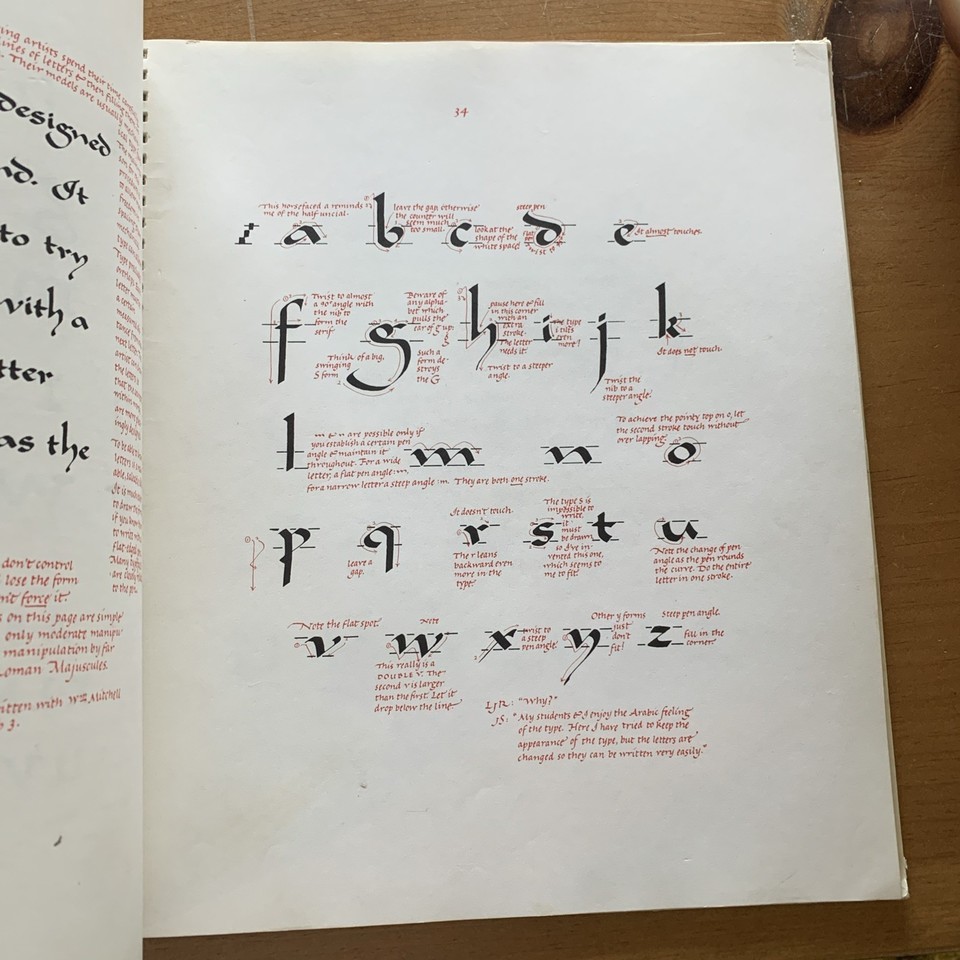 ing artists spend their time
lines of letters & then filling
Their models are usually
designed
nd. It
to try
with a
tter
as the
don't control
lose the form
n't force it.
s on this page are simple
only moderate manipu
manipulation by far
Roman Majuscules.
itten with Wm Mitchell
34
This horsefaced a reminds
me of the half uncial.
leave the gap, otherwise
the counter will
seem much
too small.
look at the
shape of the
white space!
steep pen
flat pen
twist to
It almost touches.
a b c d e
Twist to almost
a 90° angle with
the nib to
form the
serif
Think of a big,
swinging
S form
Beware of
any alpha-
bet which
pulls the
ear of g up:
such a
form de-
stroys
the G
pause here & fill
in this corner
with an
extra
stroke.
The letter
needs it.
Twist to a steeper
angle.
The type
i tilts
even
more!
Twist the
nib to a
steeper angle.
It does not touch.
f g h i j k
m & n are possible only if
you establish a certain pen
angle & maintain it
throughout. For a wide
letter, a flat pen angle: m,
for a narrow letter a steep angle: m. They are both one stroke.
To achieve the pointy top on o, let
the second stroke touch without
over lapping.
l m n o
leave a
gap.
It doesn't touch.
The r leans
backward even
more in the
type.
The type s is
impossible to
write,
it
must
be drawn
so I've in-
vented this one,
which seems to
me to fit.
Note the change of pen
angle as the pen rounds
the curve. Do the entire
letter in one stroke.
p q r s t u
Note the flat spot.
Note
This really is a
DOUBLE V. The
second v is larger
than the first. Let it
drop below the line.
twist to
a steep
pen angle.
Other y forms
just
don't
fit!
Steep pen angle.
fill in the
corner.
v w x y z
LJR: "Why?"
JS: "My students & I enjoy the Arabic feeling
of the type. Here I have tried to keep the
appearance of the type, but the letters are
changed so they can be written very easily."